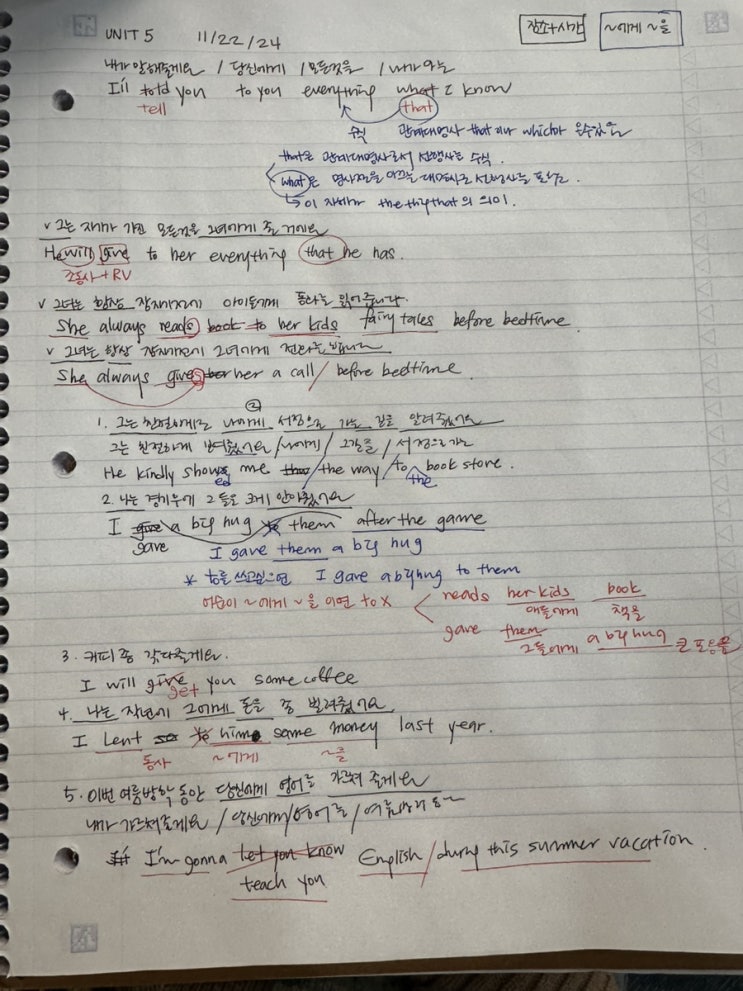 UNIT 5 11/22/24 장소+시간 ~에게 ~을
내가 말해줄게요 / 당신에게 / 모든것을 / 내가 아는
I'll told you to you everything what I know
tell that
수식 관계대명사 that 이나 which가 올수있음
that은 관계대명사로서 선행사를 수식.
what은 명사절을 이끄는 대명사로 선행사를 포함.
↳ 이 자체가 the thing that 의 의미.
v 그는 자기가 가진 모든것을 그녀에게 줄 거에요
He will give to her everything that he has.
조동사 + RV
v 그녀는 항상 잠자기전에 아이들에게 동화를 읽어줍니다.
She always reads book to her kids fairy tales before bedtime.
v 그녀는 항상 잠자기전에 그녀에게 전화를 합니다
She always gives her a call / before bedtime.
②
1. 그는 친절하게도 나에게 서점으로 가는 길을 알려줬어요
그는 친절하게 보여줬어요 / 나에게 / 그길을 / 서점으로가는
He kindly shows me the way / to book store.
ed the
2. 나는 경기후에 그들을 크게 안아줬어요
I give a big hug to them after the game
gave I gave them a big hug
* to를 쓰고싶으면 I gave a big hug to them
어순이 ~에게 ~을 이면 to X reads her kids book
애들에게 책을
gave them a big hug 큰 포옹을
그들에게
3. 커피 좀 갖다줄게요.
I will give you some coffee
get
4. 나는 작년에 그에게 돈을 좀 빌려줬어요
I lent to him some money last year.
동사 ~에게 ~을
5. 이번 여름방학 동안 당신에게 영어를 가르쳐 줄게요
내가 가르쳐줄게요 / 당신에게 / 영어를 /
I'm gonna let you know English / during this summer vacation.
teach you